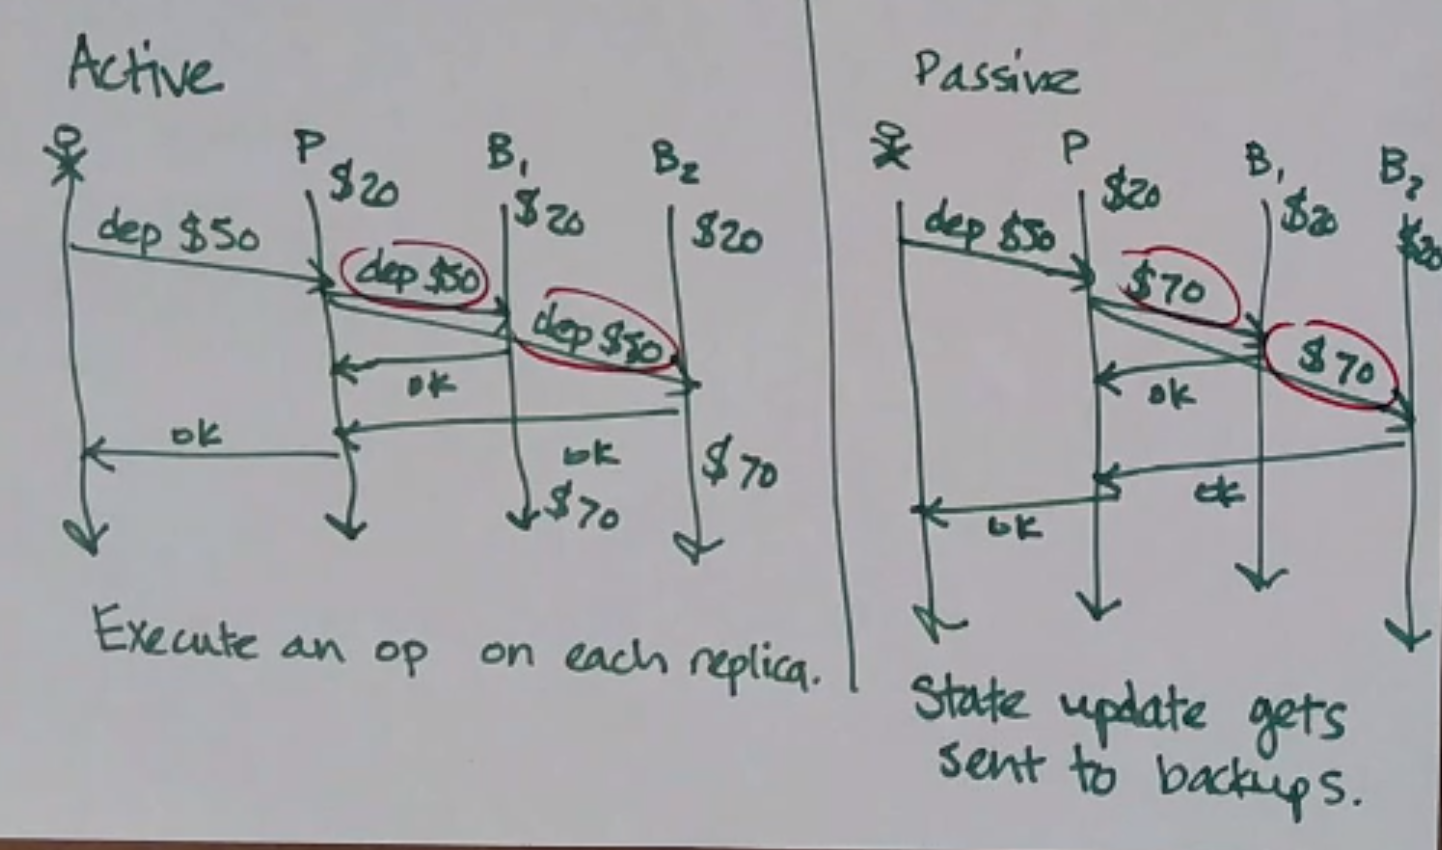 Active
P
B₁
B₂
$20
$20
$20
dep $50
dep $50
dep $50
ok
ok
ok
$70
$70
Execute an op on each replica.
Passive
P
B₁
B₂
$20
$20
$20
dep $50
$70
$70
ok
ok
ok
State update gets
sent to backups.